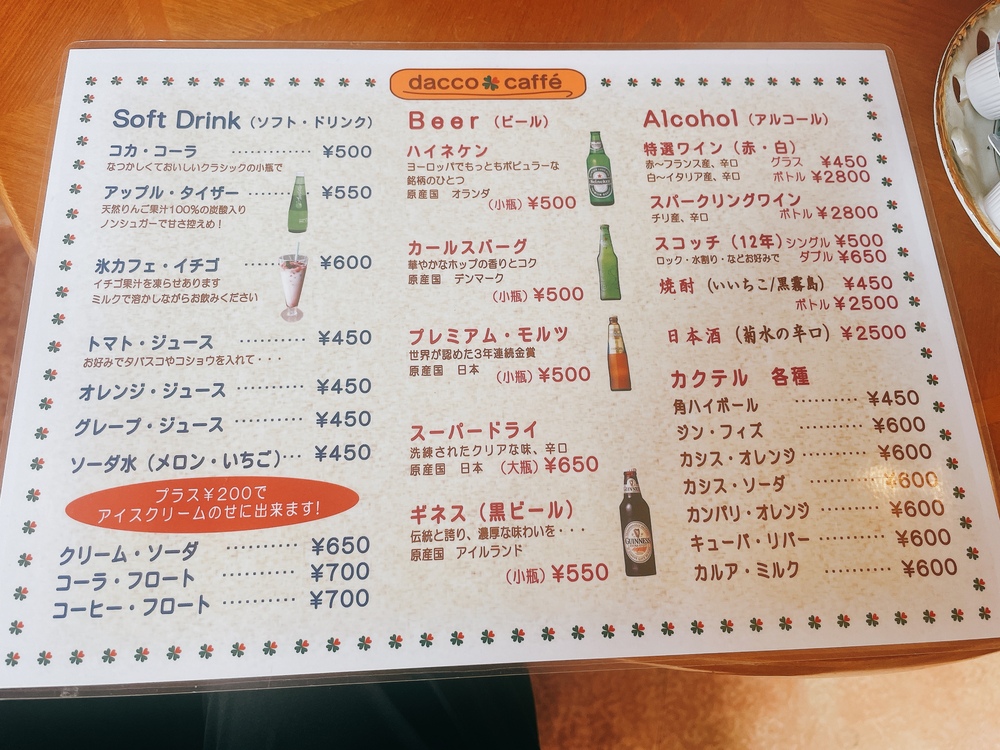 dacco caffé
Soft Drink (ソフト・ドリンク)
コカ・コーラ ………… ¥500
なつかしくておいしいクラシックの小瓶で
アップル・タイザー ……… ¥550
天然りんご果汁100%の炭酸入り
ノンシュガーで甘さ控えめ!
氷カフェ・イチゴ ……… ¥600
イチゴ果汁を凍らせあります
ミルクで溶かしながらお飲みください
トマト・ジュース ………… ¥450
お好みでタバスコやコショウを入れて・・・
オレンジ・ジュース ………… ¥450
グレープ・ジュース ………… ¥450
ソーダ水(メロン・いちご)… ¥450
プラス¥200で
アイスクリームのせに出来ます!
クリーム・ソーダ ………… ¥650
コーラ・フロート ………… ¥700
コーヒー・フロート ………… ¥700
Beer (ビール)
ハイネケン
ヨーロッパでもっともポピュラーな
銘柄のひとつ
原産国 オランダ
(小瓶) ¥500
カールスバーグ
華やかなホップの香りとコク
原産国 デンマーク
(小瓶) ¥500
プレミアム・モルツ
世界が認めた3年連続金賞
原産国 日本 (小瓶) ¥500
スーパードライ
洗練されたクリアな味、辛口
原産国 日本 (大瓶) ¥650
ギネス(黒ビール)
伝統と誇り、濃厚な味わいを・・・
原産国 アイルランド
(小瓶) ¥550
GUINNESS
Alcohol (アルコール)
特選ワイン(赤・白)
赤〜フランス産、辛口 グラス ¥450
白〜イタリア産、辛口 ボトル ¥2800
スパークリングワイン
チリ産、辛口 ボトル ¥2800
スコッチ(12年) シングル ¥500
ロック・水割り・などお好みで ダブル ¥650
焼酎 (いいちこ/黒霧島) ¥450
ボトル ¥2500
日本酒 (菊水の辛口) ¥2500
カクテル 各種
角ハイボール ………… ¥450
ジン・フィズ ………… ¥600
カシス・オレンジ ………… ¥600
カシス・ソーダ ………… ¥600
カンパリ・オレンジ ………… ¥600
キューバ・リバー ………… ¥600
カルア・ミルク ………… ¥600